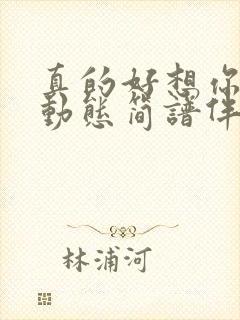 真的好想你
動態簡譜伴
林浦河